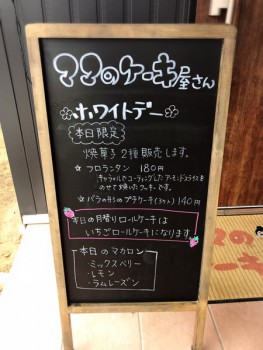 ママのケーキ屋さん
ホワイトデー
本日限定
焼菓子2種販売します。
☆フロランタン 180円
キャラメルでコーティングしたアーモンドスライスを
のせて焼いたクッキーです。
140円
今日の月替りロールケーキは
いちごロールケーキになります
本日のマカロン
・ミックスベリー
・レモン
・ラムレーズン